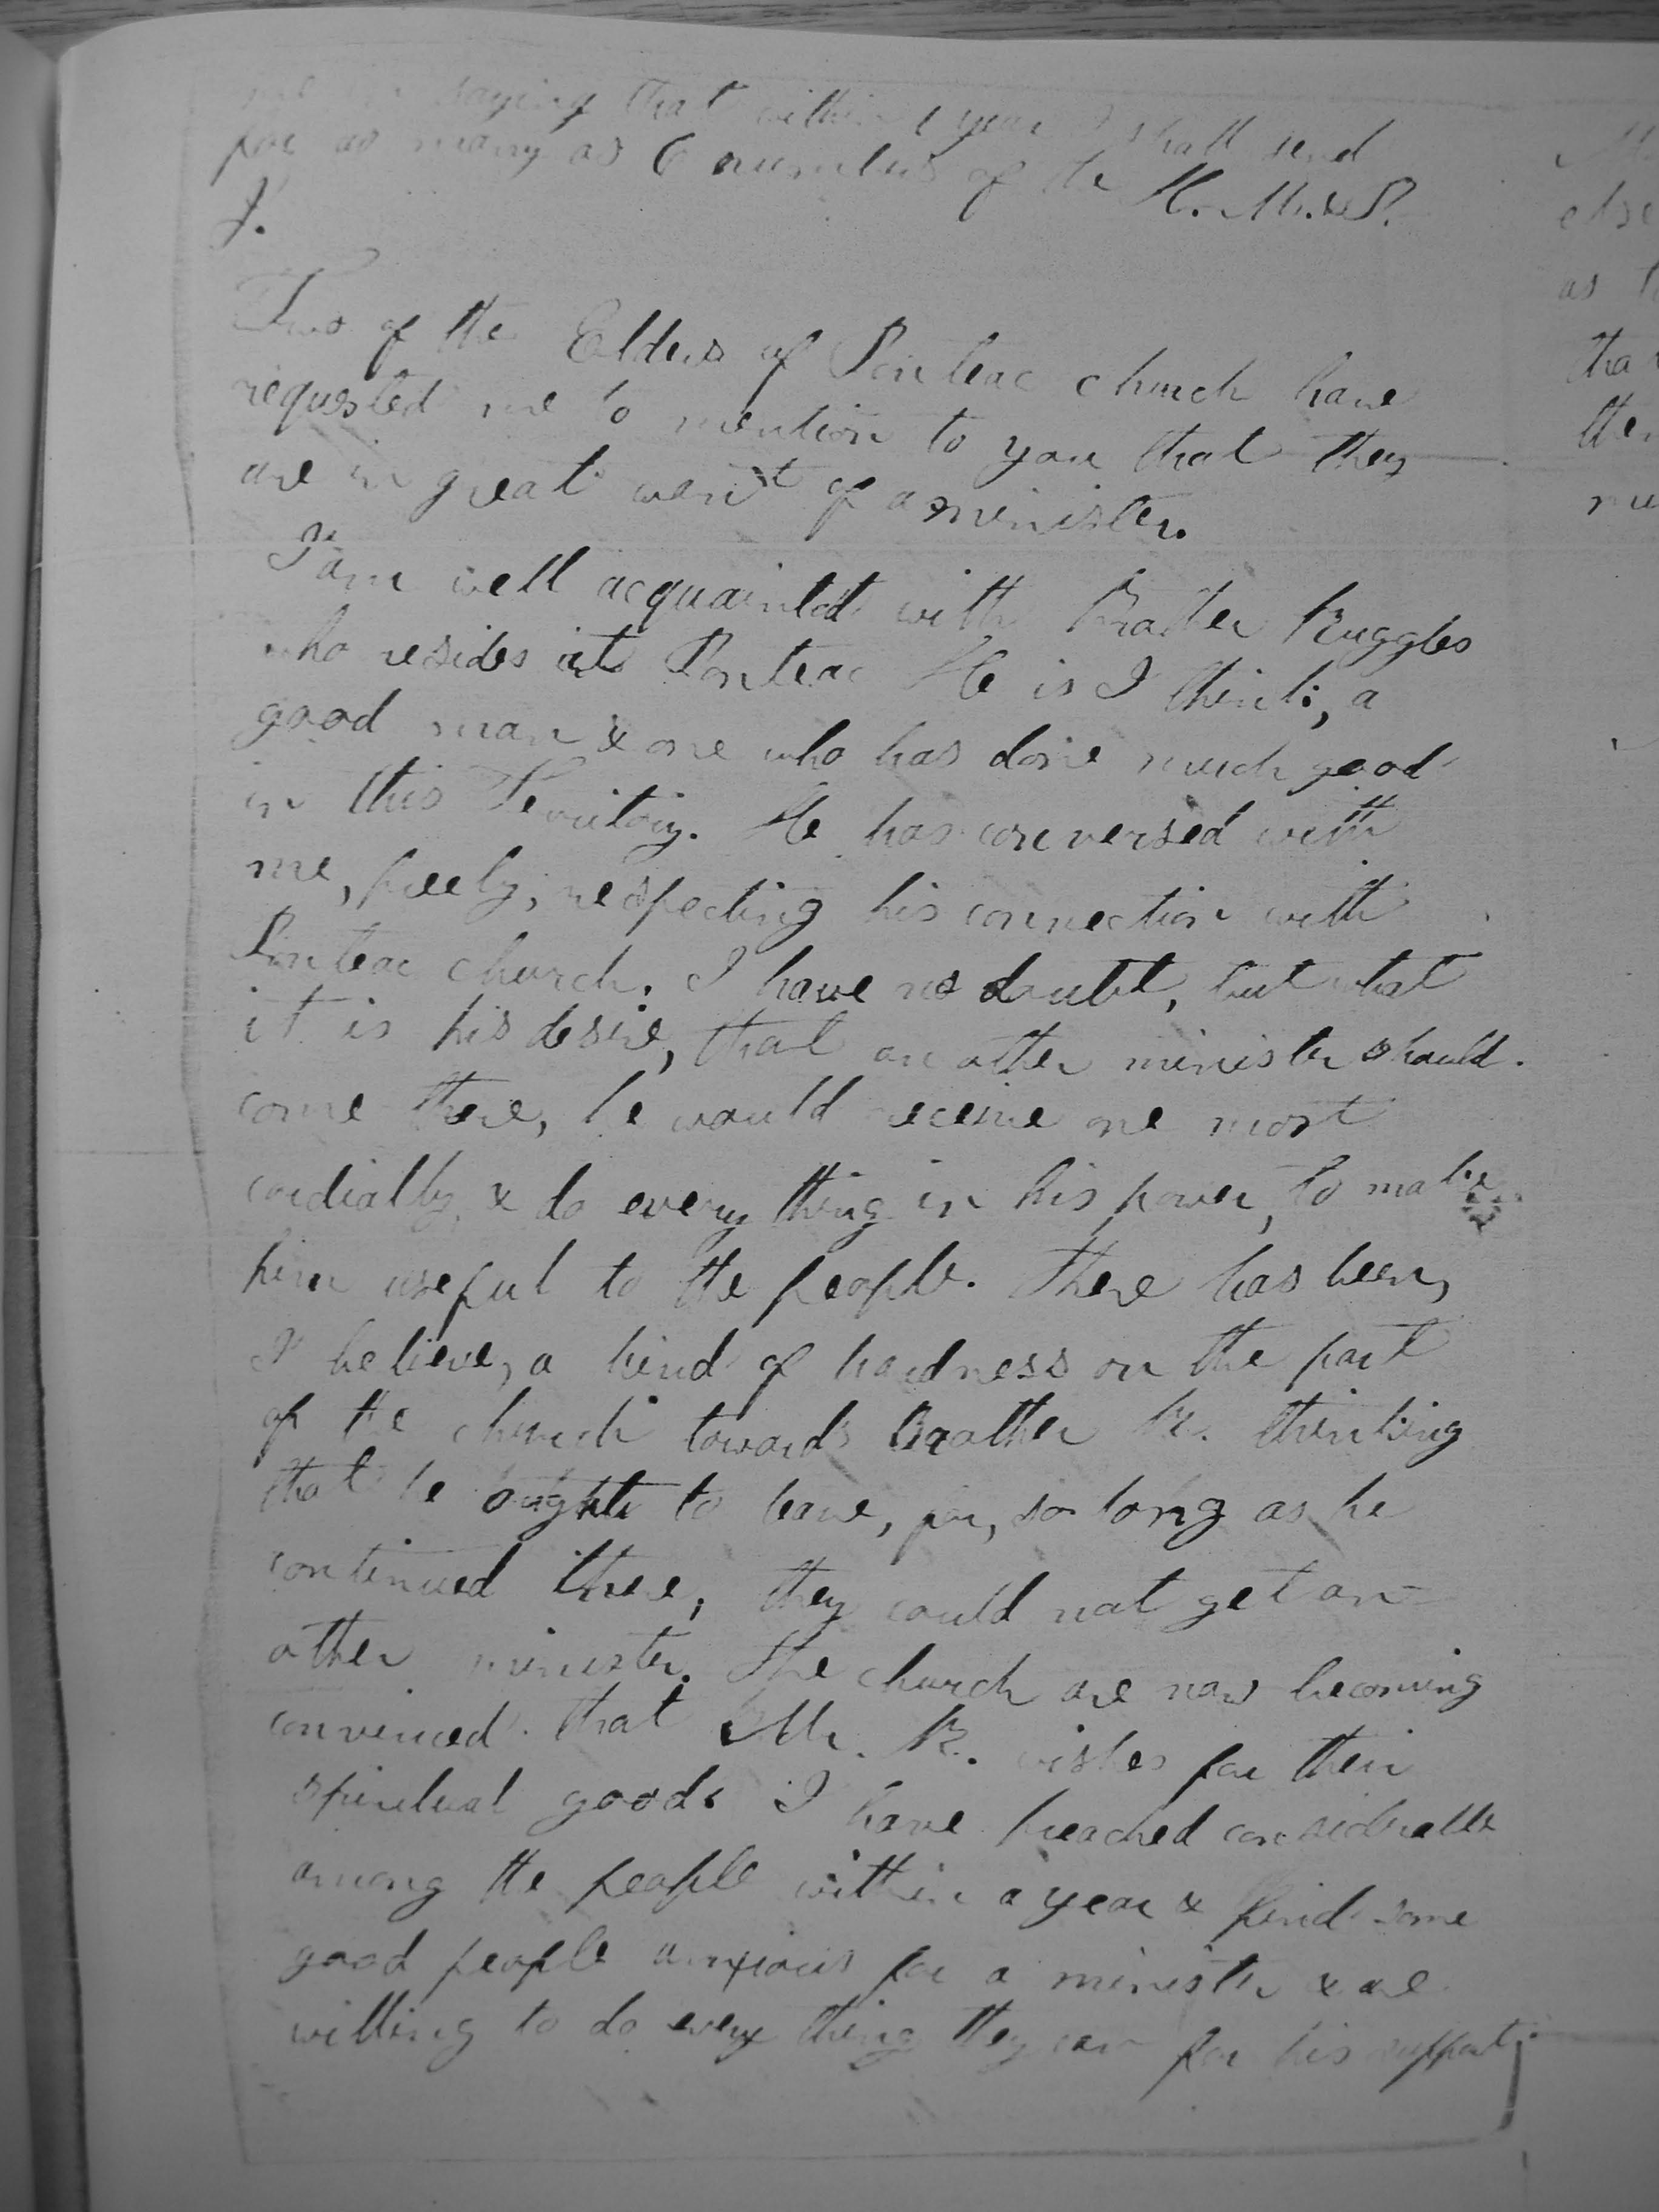 me in saying that within 1 year I shall send
for as many as 6 numbers of the H. M. & P.
J.
Two of the Elders of Ponteac church have
requested me to mention to you that they
are in great want of a minister.
I am well acquainted with Brother Ruggles
who resides at Ponteac He is I think, a
good man & one who has done much good
in this Territory. He has conversed with
me, freely, respecting his connection with
Ponteac church. I have no doubt, but what
it is his desire, that an other minister should
come there, he would receive one most
cordially, & do every thing in his power, to make
him useful to the people. There has been,
I believe, a kind of hardness on the part
of the church towards Brother R. thinking
that he ought to leave, for, so long as he
continued there, they could not get an-
other minister. The church are now becoming
convinced that Mr. R. wishes for their
spiritual good. I have preached considerable
among the people within a year & find some
good people anxious for a minister & are
willing to do every thing they can for his support.
else
as
the